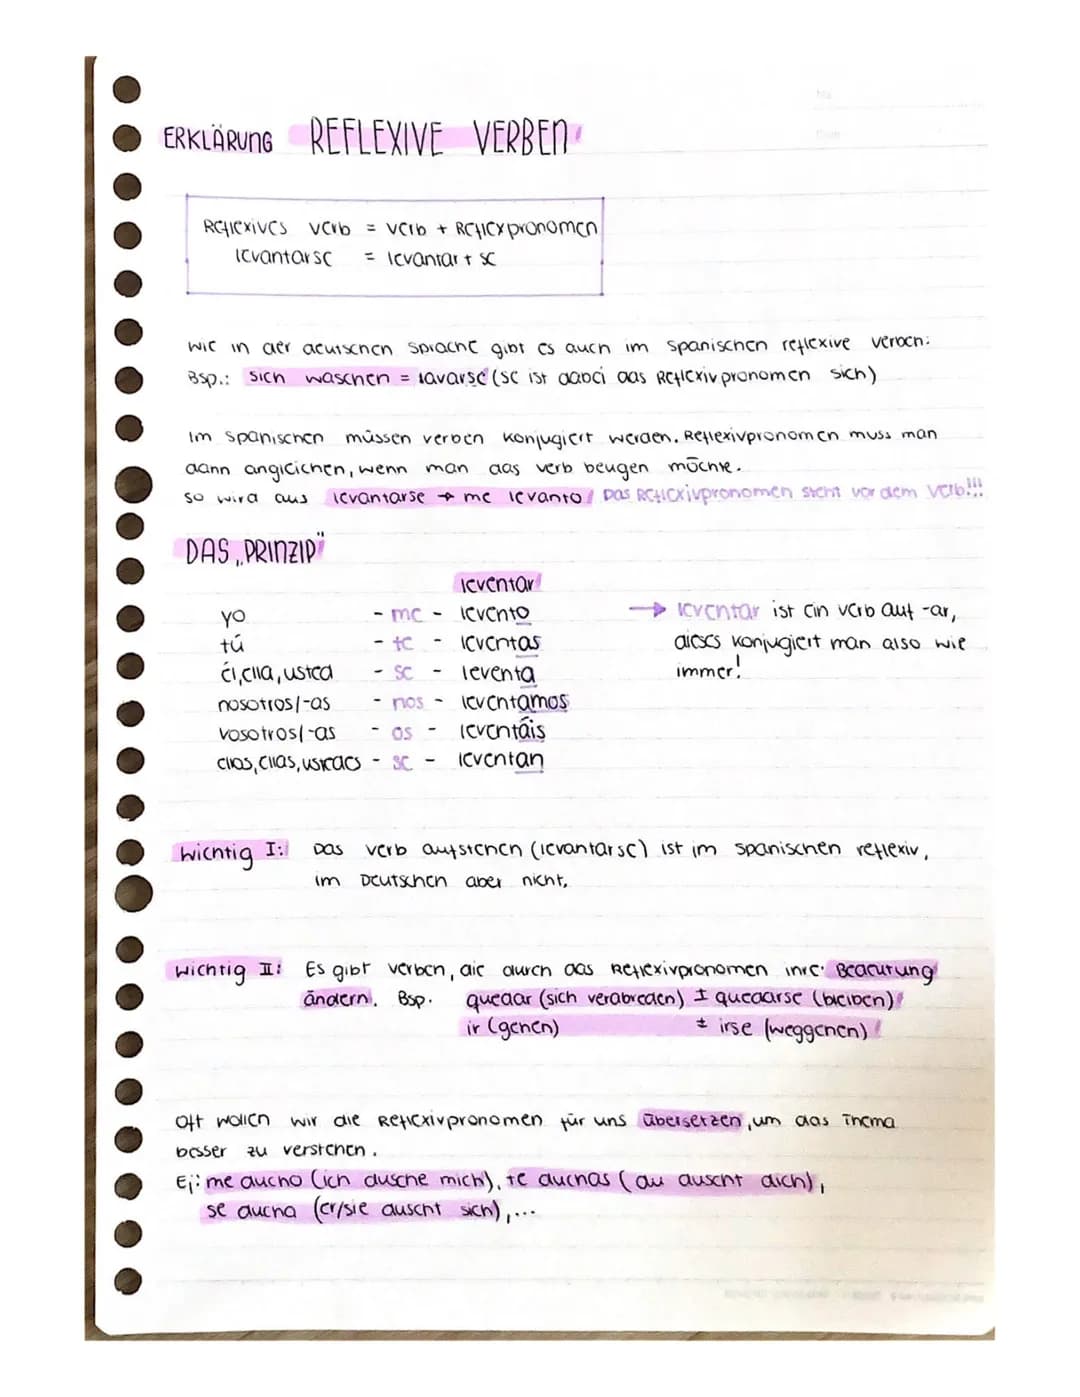 ERKLÄRUNG REFLEXIVE VERBEN
Reflexives verb = verb + Reflexpronomen
levantarse = levantar + se
Wie in der deutschen Sprache gibt es auch im Spanischen reflexive verben:
Bsp.: sich waschen = lavarse (se ist dabei das Reflexivpronomen sich)
Im Spanischen müssen verben konjugiert werden. Reflexivpronomen muss man
dann angleichen, wenn man das verb beugen möchte.
So wird aus levantarse → me levanto! Das Reflexivpronomen steht vor dem Verb!!!
DAS „PRINZIP"
leventar
yo - me - levento → leventar ist ein verb auf -ar,
tú - te - leventas dieses konjugiert man also wie
él, ella, usted - se - leventa immer!
nosotros/-as - nos - leventamos
vosotros/-as - os - leventáis
ellos, ellas, ustedes - se - leventan
Wichtig I: Das verb aufstehen (levantarse) ist im spanischen reflexiv,
im Deutschen aber nicht.
Wichtig II: Es gibt verben, die durch das Reflexivpronomen ihre Bedeutung
ändern. Bsp. quedar (sich verabreden) ≠ quedarse (bleiben)!
ir (gehen) ≠ irse (weggehen)!
Oft wollen wir die Reflexivpronomen für uns übersetzen, um das Thema
besser zu verstehen.
Ej: me ducho (ich dusche mich), te duchas (du duscht dich),
se ducha (er/sie duscht sich), ...